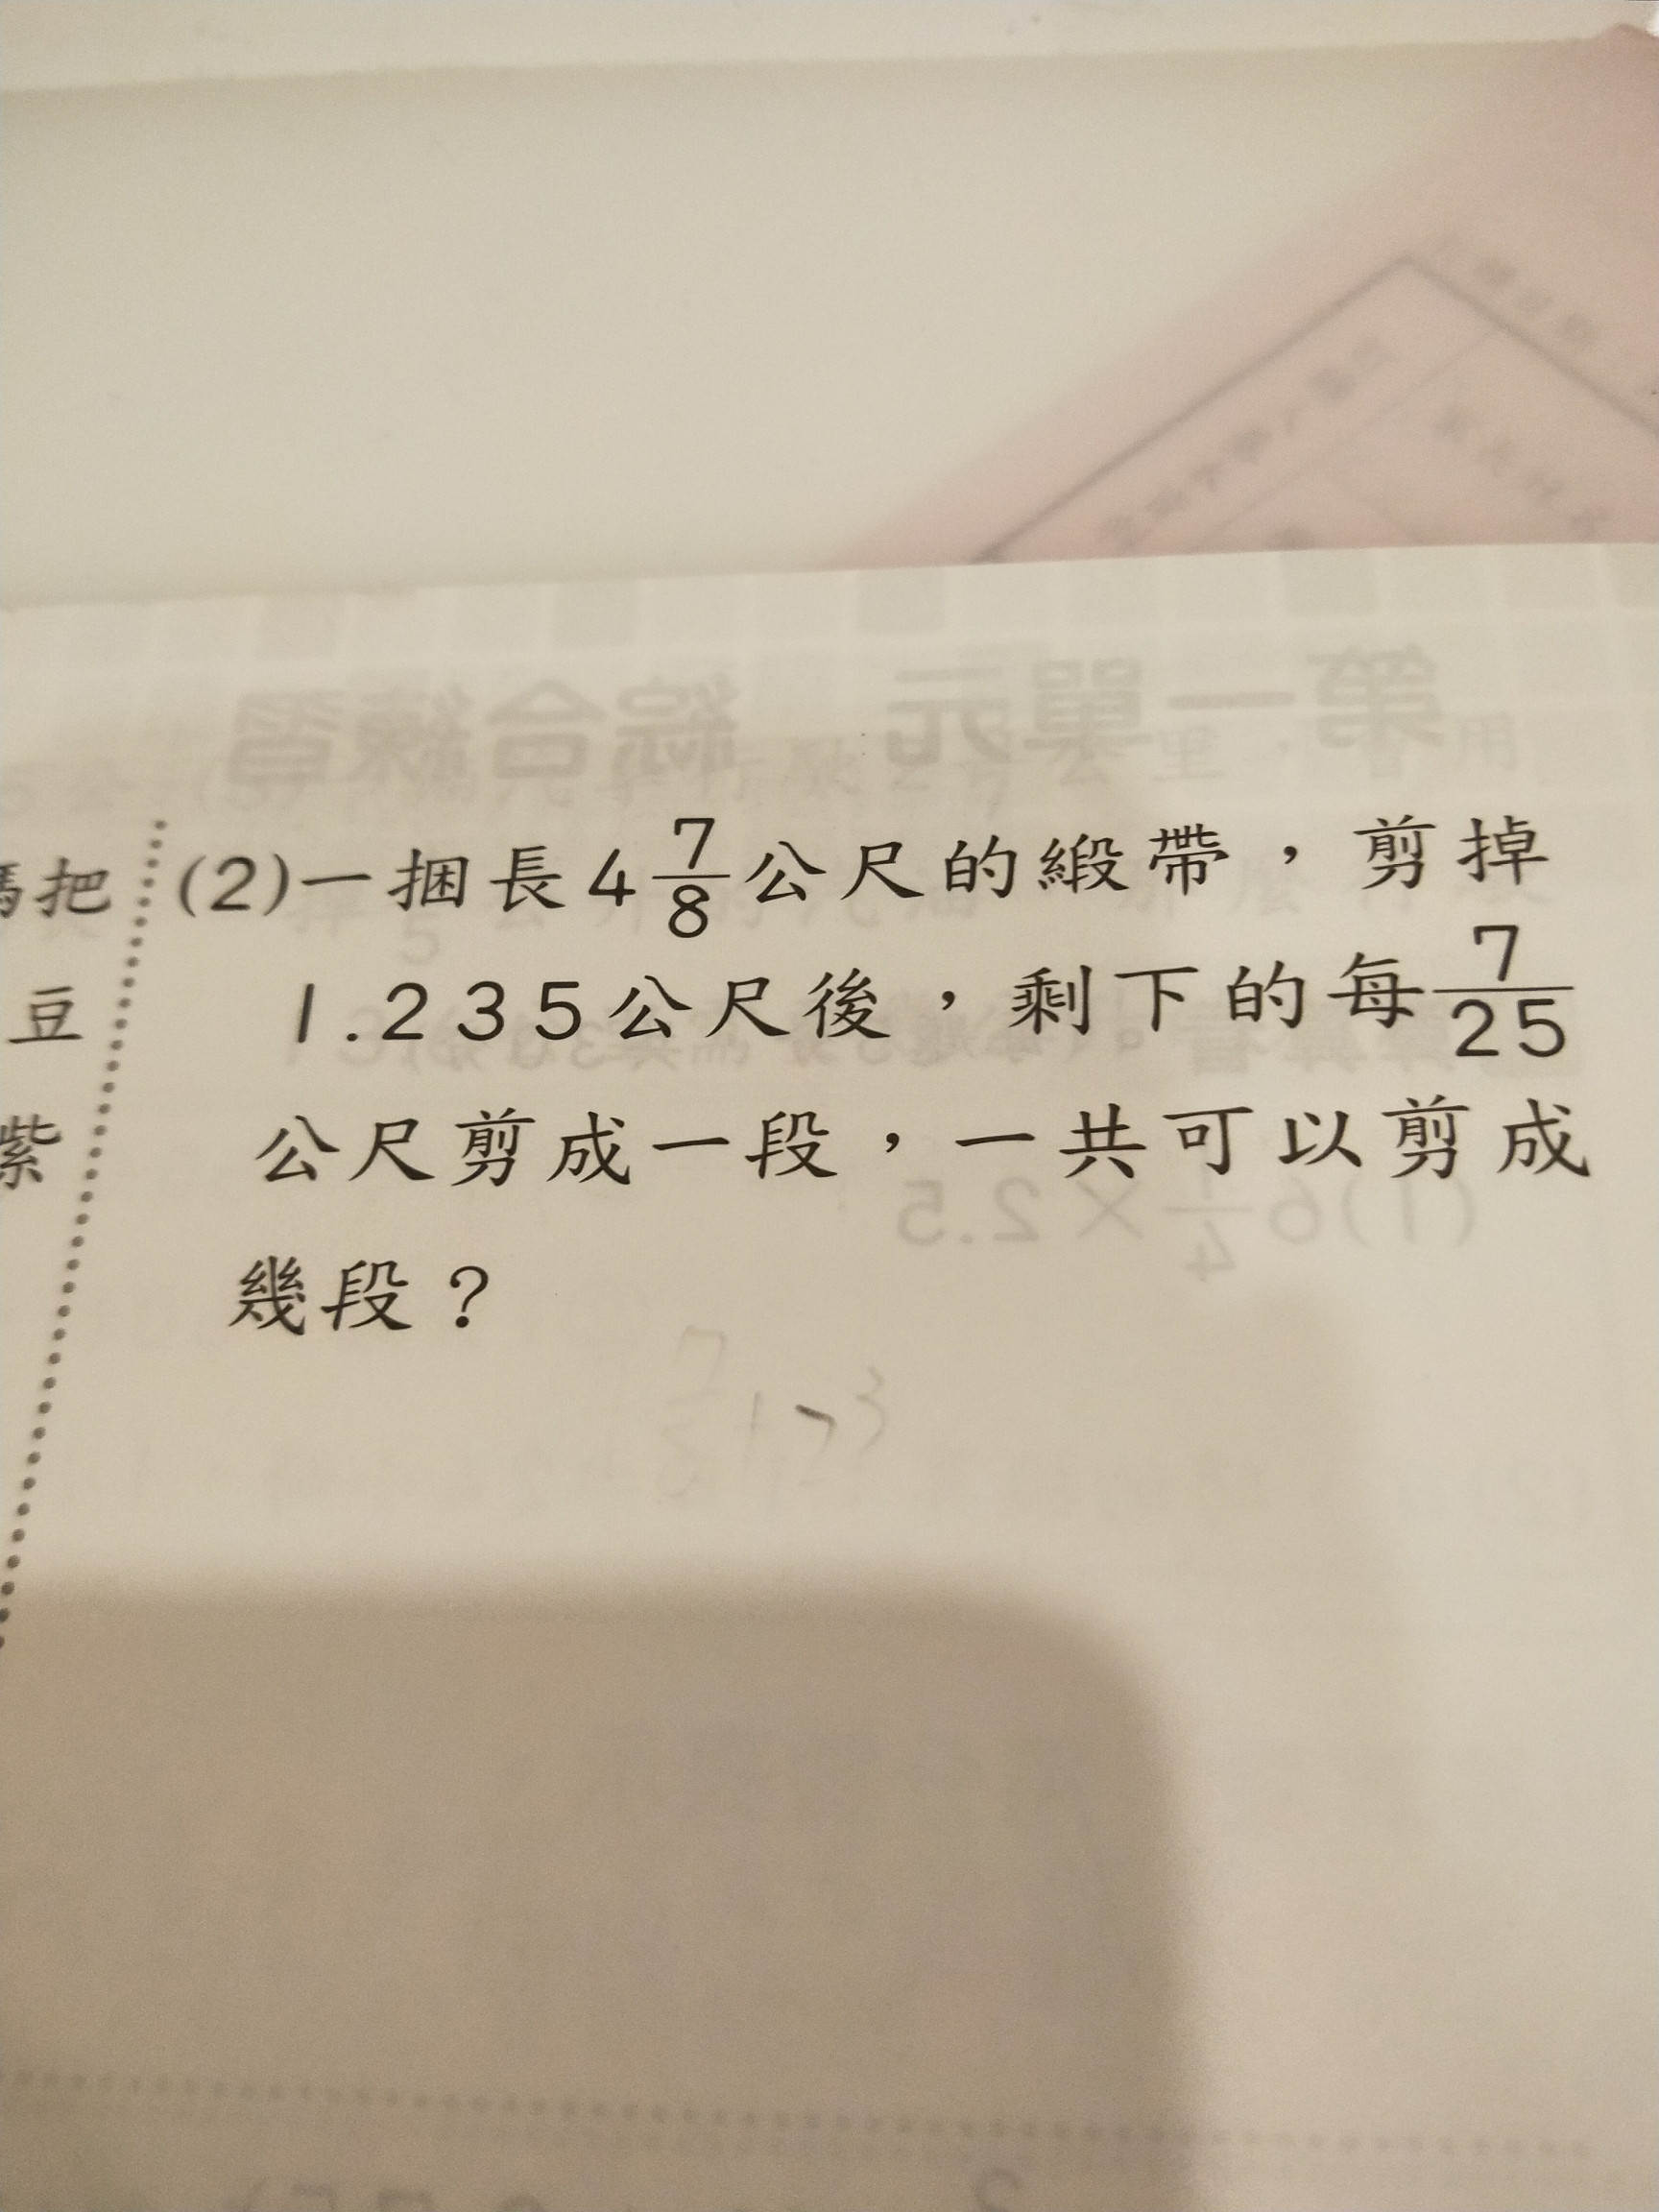 (2)一捆長4 7/8公尺的緞帶，剪掉
把
1.235公尺後，剩下的每7/25
豆
公尺剪成一段，一共可以剪成
紫
幾段？